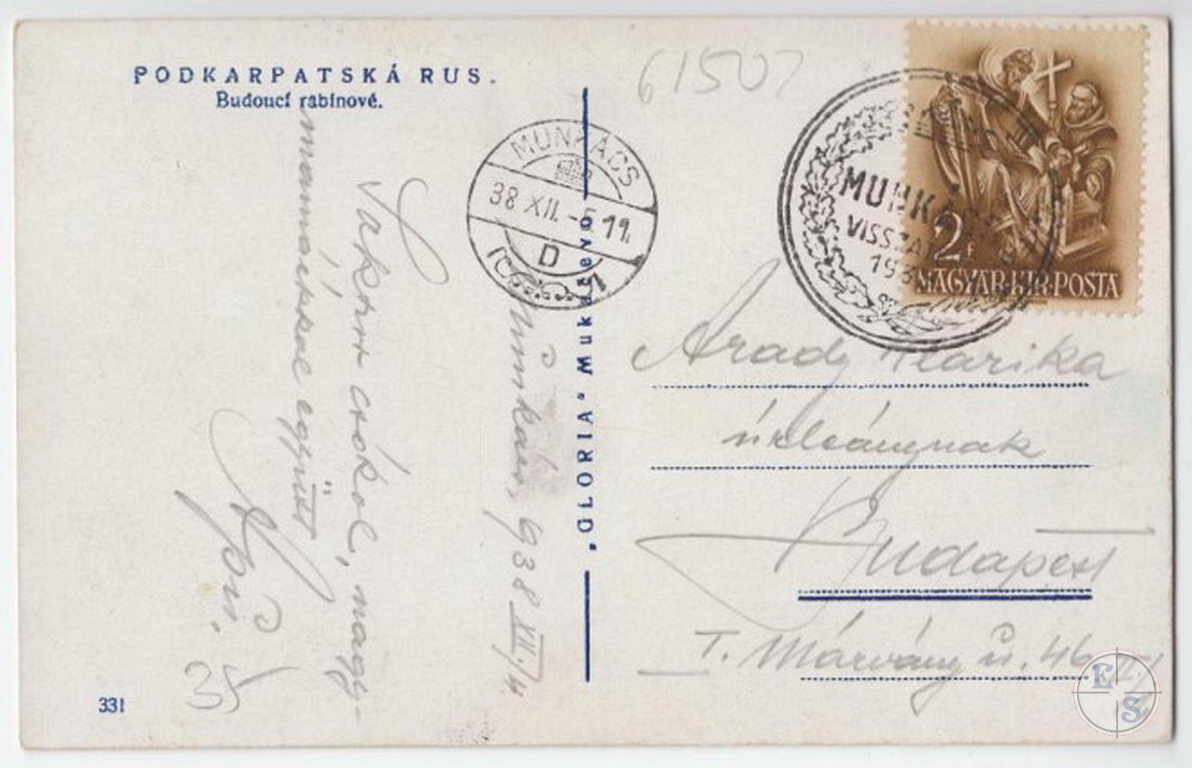 PODKARPATSKÁ RUS.
Budoucí rabínové.
61507
MUNKÁCS
38 XII. -5 11
D
MUNKÁCS
VISSZA
193
2f
MAGYAR·KIR·POSTA
Munkács, 938 XII/4.
csókol, nagy-
mamáékkal együtt
Apu.
35
„GLORIA“ Mukačevo
Arady Klárika
úrleánynak
Budapest
I. Márvány u. 46 II/1
331
E
S